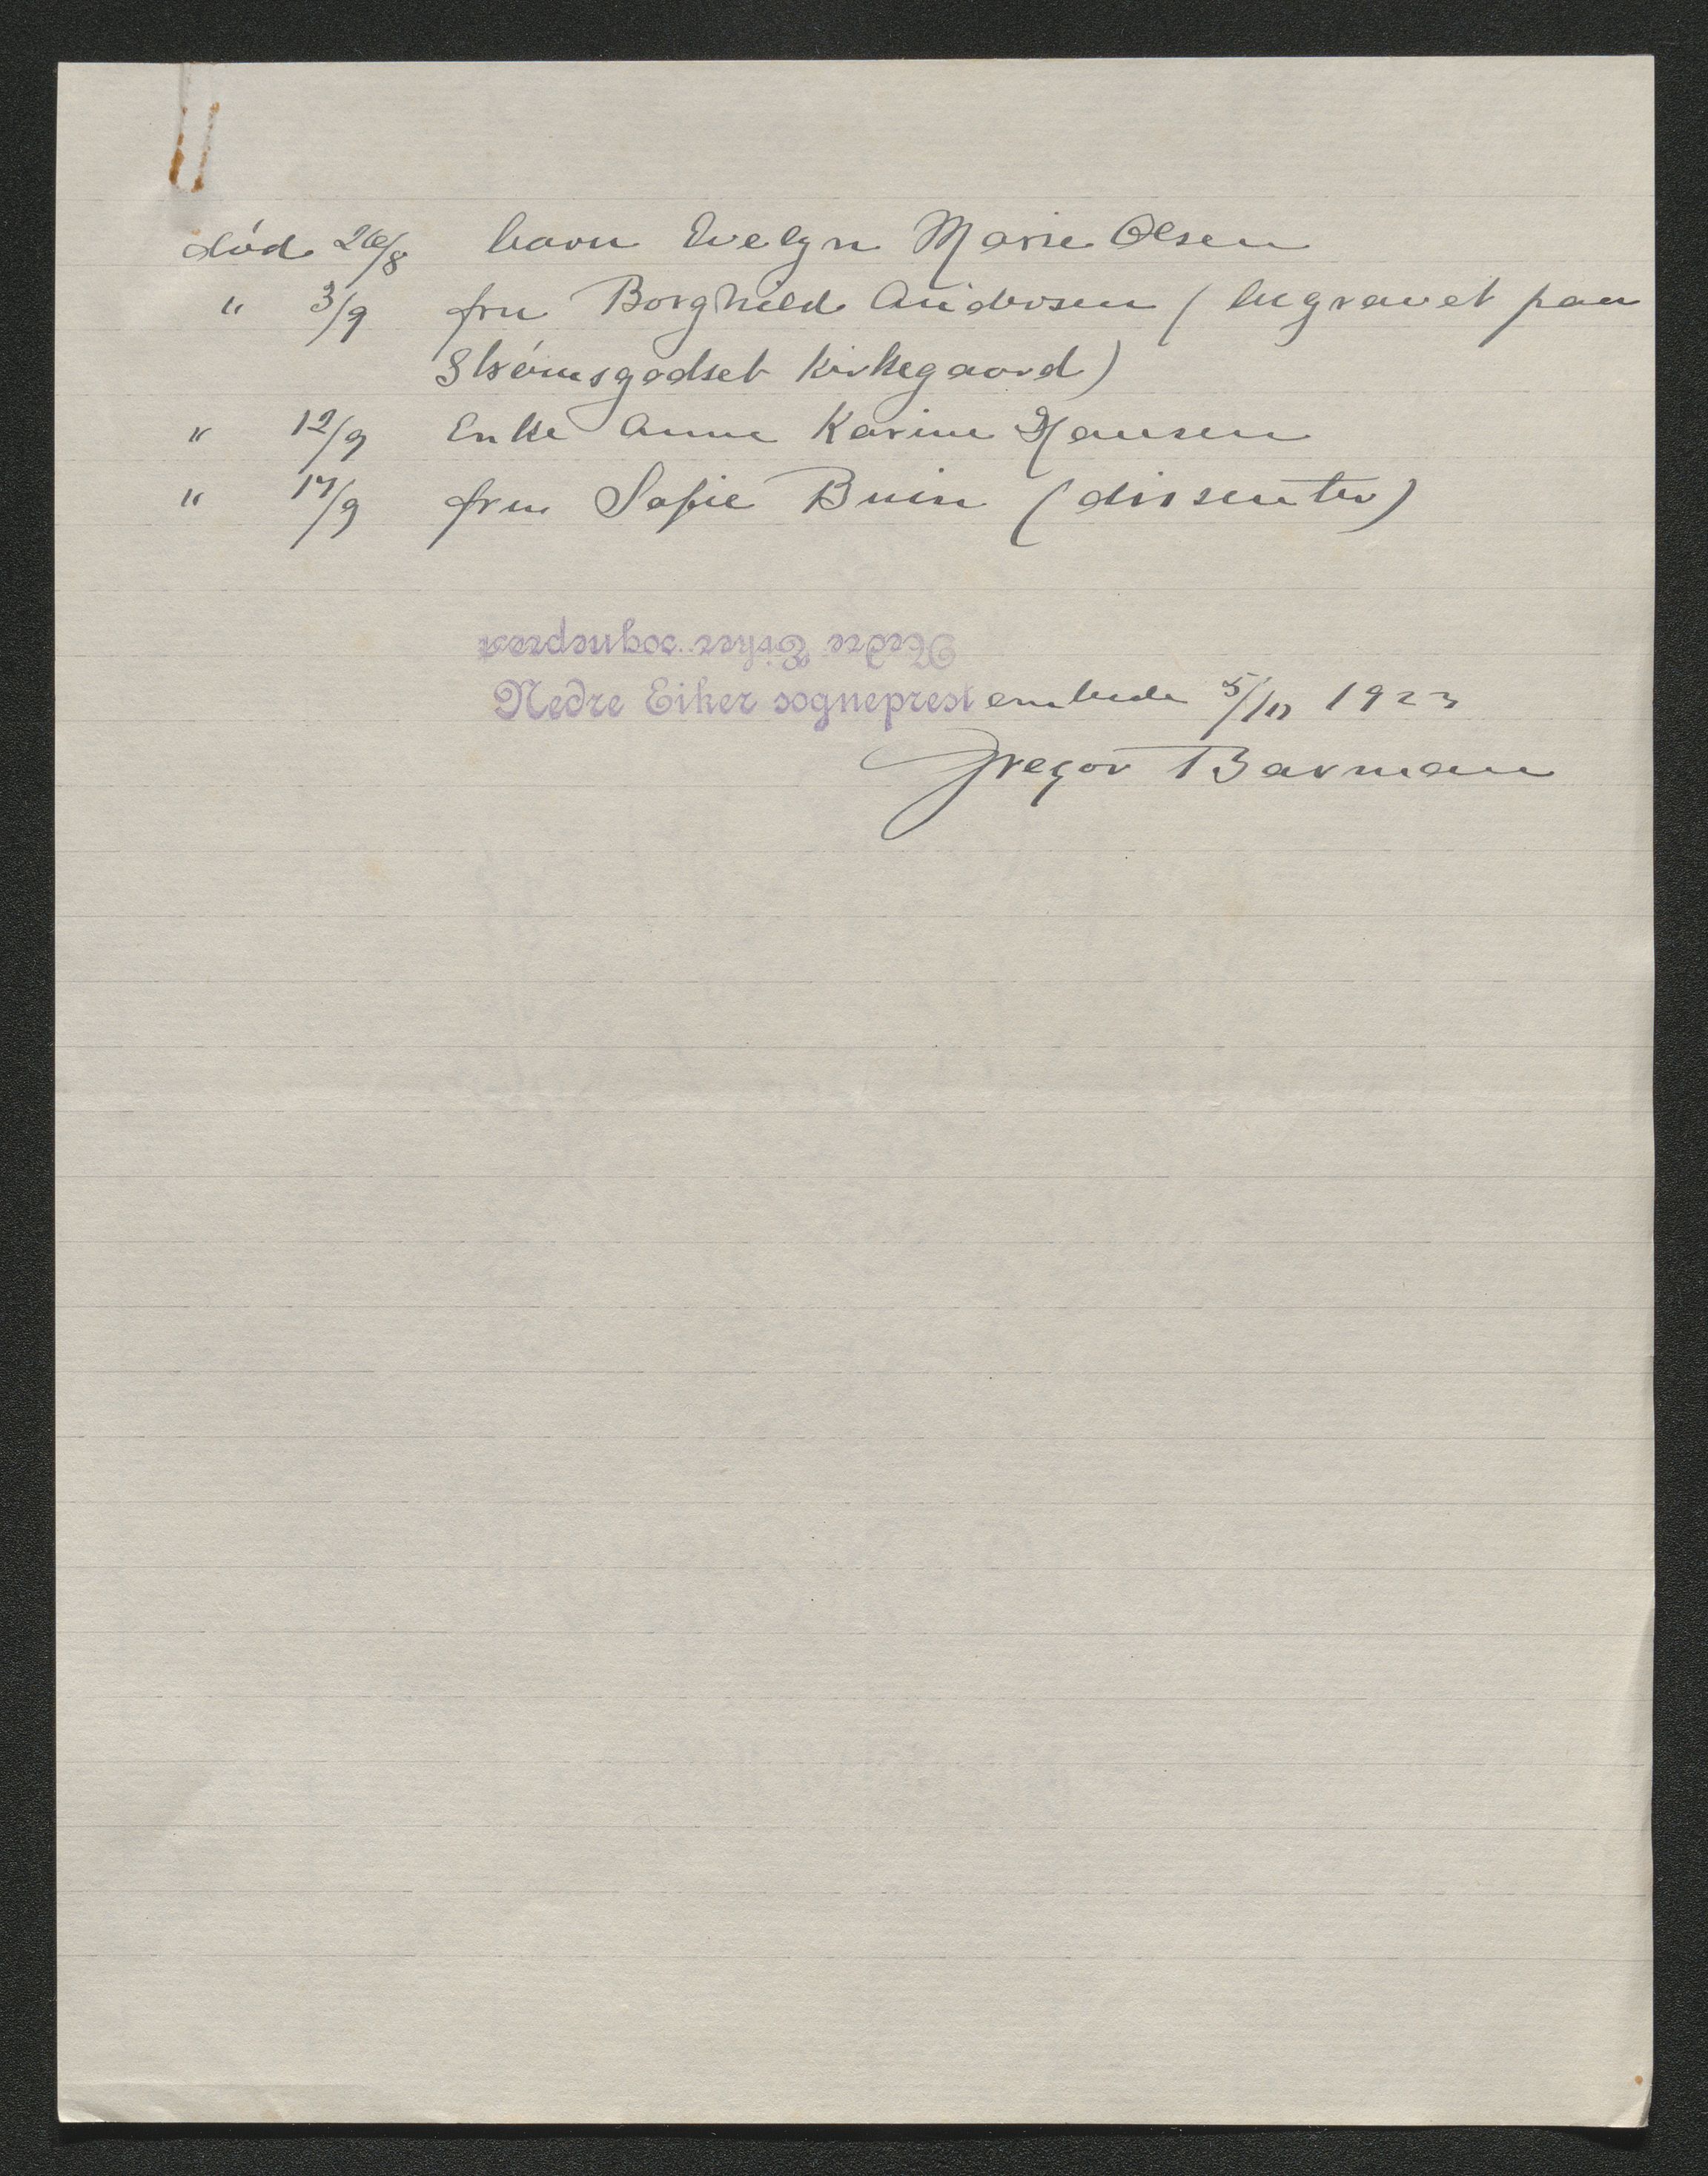 død 26/8 barn Evelyn Marie Olsen
" 3/9 fru Borghild Andersen (begravet paa
Strømsgodset kirkegaard)
" 12/9 Enke Anne Karine Hansen
" 17/9 fru Sofie Bruin (dissenter)
Nedre Eiker sogneprest
Nedre Eiker sogneprest embede 5/10 1923
Gregor Barman